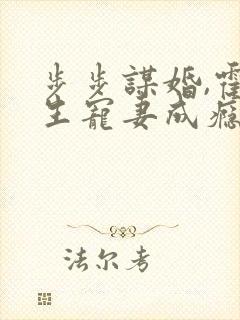 步步謀婚,霍
生寵妻成癮
法尔考